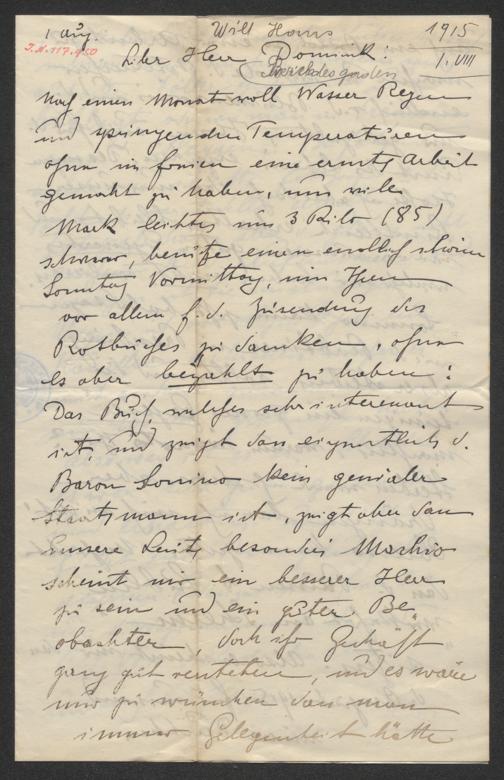 1 Aug.
Will Haus
1915
J.N. 117.450
1. VIII
Lieber Herr Dominik!
Berchtesgaden
Nach einem Monat voll Wasser Regen
und springenden Temperaturen
ohne im freien eine ernste Arbeit
gemacht zu haben, um viele
Mark leichter um 3 Kilo (85)
schwerer, benütze einen endlich schönen
Sonntag Vormittag, um Ihnen
vor allem f. d. Zusendung des
Rotbuches zu danken, ohne
es aber bezahlt zu haben!
Das Buch, welches sehr interessant
ist, und zeigt dass eigentlich d.
Baron Sonnino kein genialer
Staatsmann ist, zeigt aber dass
unsere Leute besonders Macchio
scheint mir ein besserer Herr
zu sein und ein guter Be
obachter, doch ihr Geschäft
ganz gut verstehen, und es wäre
nur zu wünschen dass man
immer Gelegenheit hätte